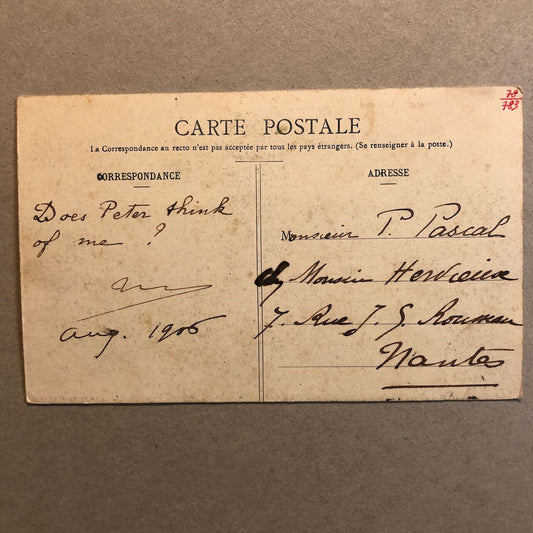 78
783
CARTE POSTALE
la Correspondance au recto n'est pas acceptée par tous les pays étrangers. (Se renseigner à la poste.)
CORRESPONDANCE
Does Peter think
of me ?
Aug. 1906
ADRESSE
Monsieur P. Pascal
Monsieur Hervieux
7. Rue J. J. Rousseau
Nantes